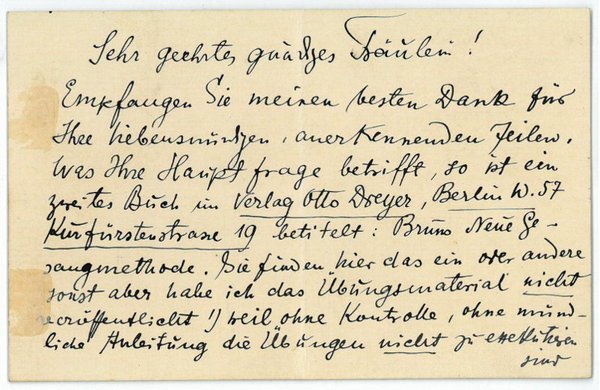 Sehr geehrtes gnädges Fräulein!
Empfangen Sie meinen besten Dank für
Ihre liebenswürdgen, anerkennenden Zeilen.
Was Ihre Hauptfrage betrifft, so ist ein
zweites Buch im Verlag Otto Dreyer, Berlin W. 57
Kurfürstenstrasse 19 betitelt: Bruns Neue Ge-
sangmethode. Sie finden hier das ein oder andere
sonst aber habe ich das Übungsmaterial nicht
veröffentlicht!) weil ohne Kontrolle, ohne münd-
liche Anleitung die Übungen nicht zu exekutieren
sind